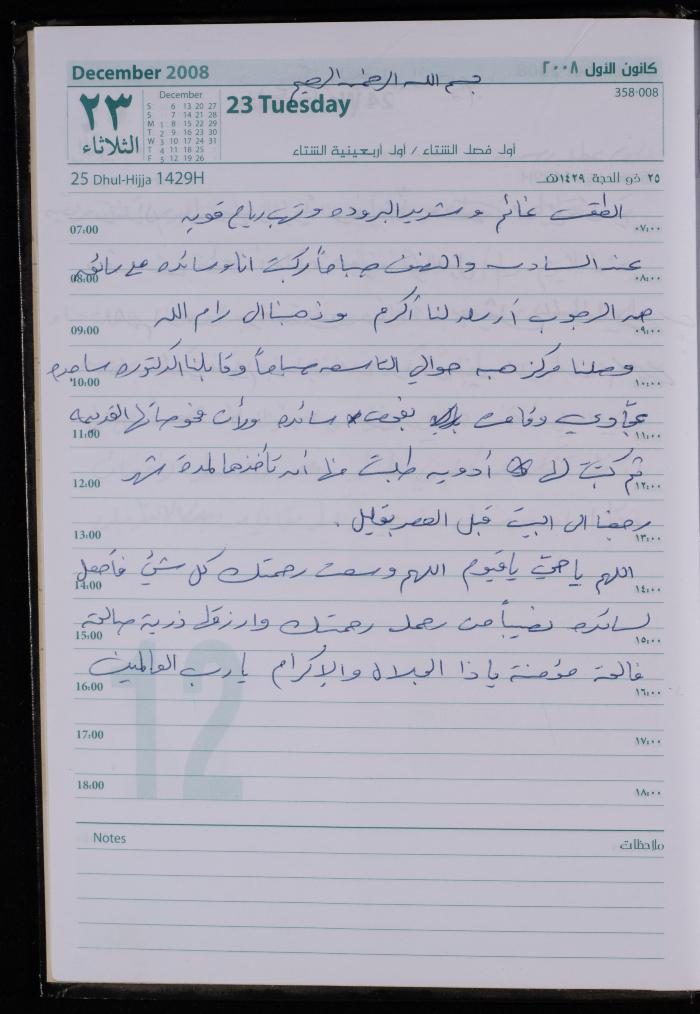 December 2008
كانون الأول ٢٠٠٨
بسم الله الرحمن الرحيم
٢٣
الثلاثاء
December
S 6 13 20 27
S 7 14 21 28
M 1 8 15 22 29
T 2 9 16 23 30
W 3 10 17 24 31
T 4 11 18 25
F 5 12 19 26
23 Tuesday
358-008
أول فصل الشتاء / أول أربعينية الشتاء
25 Dhul-Hijja 1429H
٢٥ ذو الحجة ١٤٢٩هـ
الطقس غائم وشديد البروده وتهب رياح قويه
07:00 ٠٧:٠٠
عند السادسه والنصف صباحاً ركبت انا وسائده مع سائق
08:00 ٠٨:٠٠
من الرجوب أرسله لنا أكرم وذهبنا الى رام الله
09:00 ٠٩:٠٠
وصلنا مركز حوالي التاسعه صباحاً وقابلنا الدكتوره ساجده
10:00 ١٠:٠٠
وقامت بفحص سائده ورأت فحوصاتها القديمه
11:00 ١١:٠٠
ثم كتبت لها أدويه طلبت منها أن تأخذها لمدة شهر
12:00 ١٢:٠٠
رجعنا الى البيت قبل العصر بقليل .
13:00 ١٣:٠٠
اللهم يا حيّ يا قيوم اللهم وسعت رحمتك كل شيء فأجعل
14:00 ١٤:٠٠
لسائده نصيباً من رحمتك وارزقها ذرية صالحة
15:00 ١٥:٠٠
مؤمنة يا ذا الجلال والإكرام يا رب العالمين
16:00 ١٦:٠٠
12
17:00 ١٧:٠٠
18:00 ١٨:٠٠
Notes ملاحظات